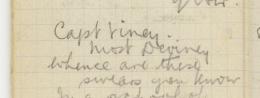 Capt Viney..
Most Deviney
whence are these
swears you know